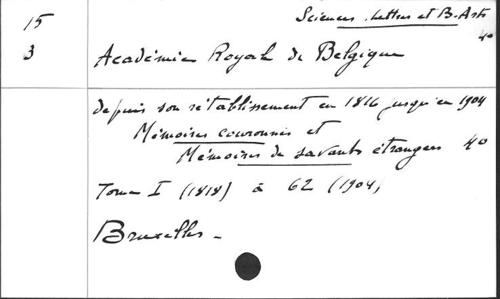 15
3
Sciences, Lettres et B. Arts
4o
Académie Royale de Belgique
depuis son rétablissement en 1816 jusqu'en 1904
Mémoires couronnés et
Mémoires de savants étrangers 4o
Tome I (1818) à 62 (1904)
Bruxelles -